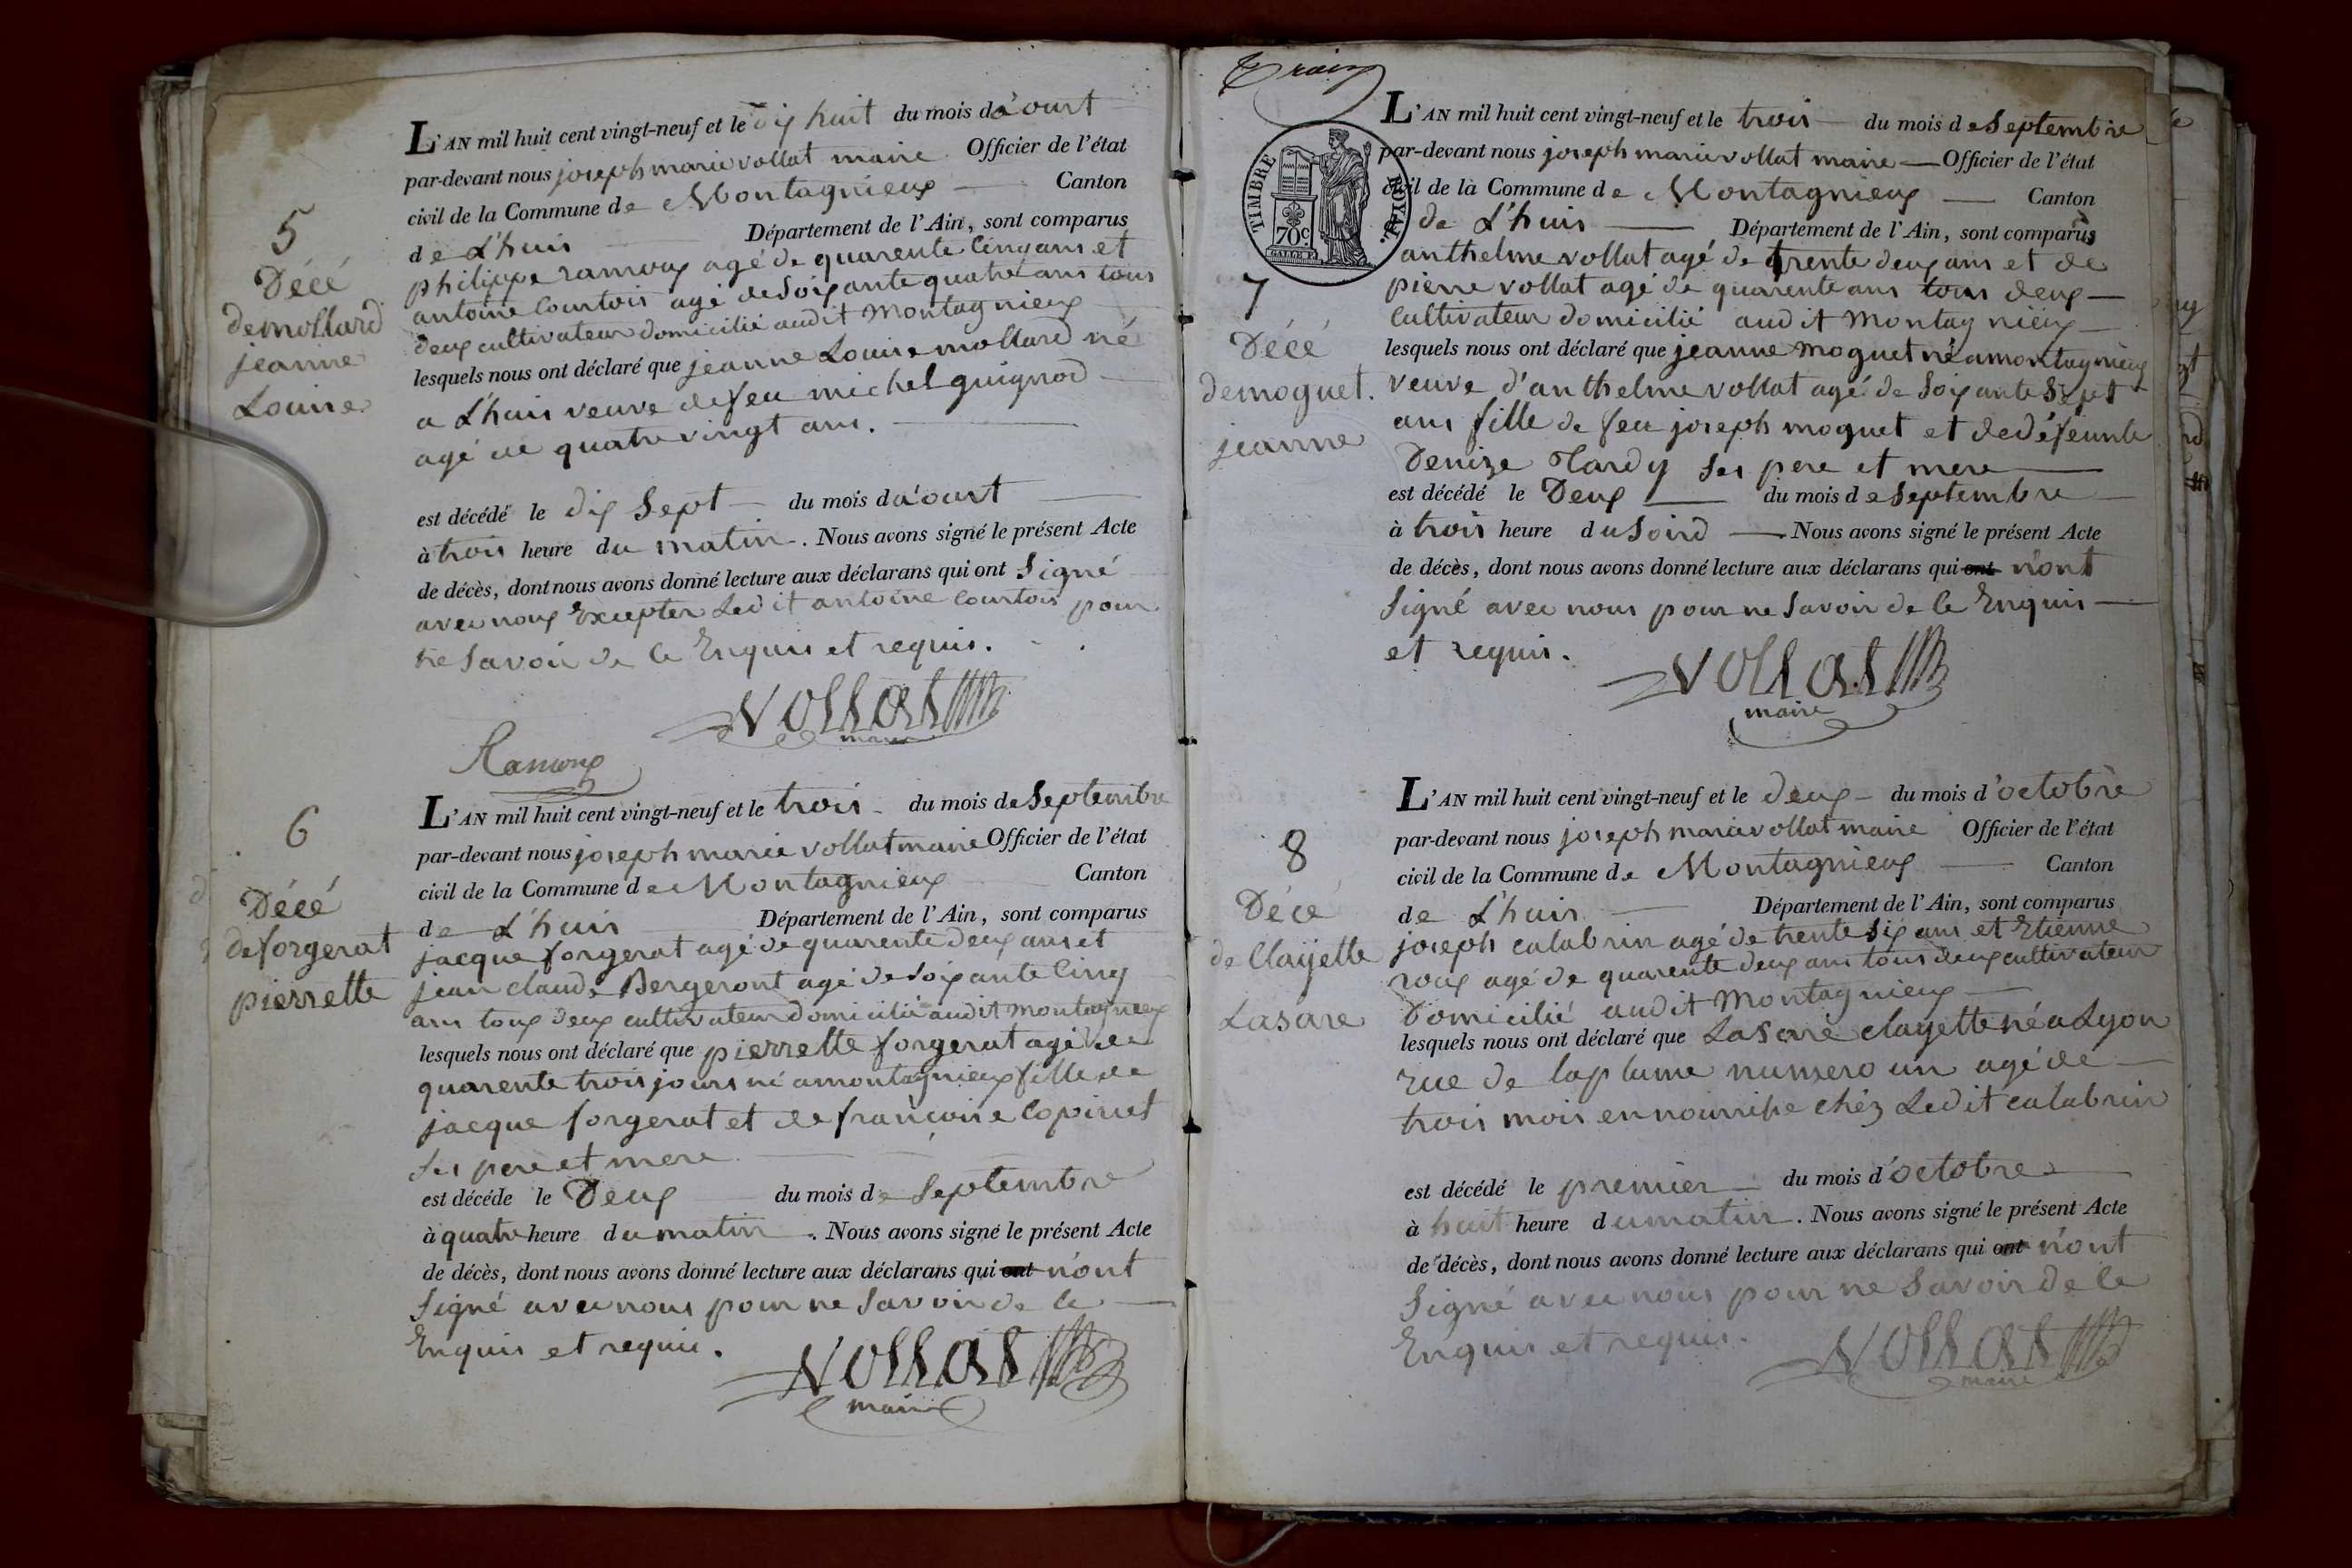 5
Décé
demollard
jeanne
Louise
L'AN mil huit cent vingt-neuf et le dix huit du mois d'aoust
par-devant nous joseph marie vollat maire Officier de l'état
civil de la Commune de Montagnieux Canton
de L'huis Département de l'Ain, sont comparus
philippe ramoux agé de quarente cinq ans et
antoine Courtois agé de Soixante quatre ans tous
deux cultivateur domicilié audit Montagnieux
lesquels nous ont déclaré que jeanne Louise mollard né
a L'huis veuve de feu michel guignod
agé de quatre vingt ans.
est décédé le dix Sept du mois d'aoust
à trois heure du matin. Nous avons signé le présent Acte
de décès, dont nous avons donné lecture aux déclarans qui ont Signé
avec nous Excepter Ledit antoine Courtois pour
ne Savoir de ce Enquis et requis.
Vollat
maire
Ramoux
6
Décé
deforgerat
pierrette
L'AN mil huit cent vingt-neuf et le trois du mois de Septembre
par-devant nous joseph marie vollat maire Officier de l'état
civil de la Commune de Montagnieux Canton
de L'huis Département de l'Ain, sont comparus
jacque forgerat agé de quarente deux ans et
jean claude Bergeront agé de Soixante Cinq
ans tous deux cultivateur domicilié audit montagnieux
lesquels nous ont déclaré que pierrette forgerat agé de
quarente trois jours né amontagnieux fille de
jacque forgerat et de françoise Copinet
Ses pere et mere
est décéde le Deux du mois de Septembre
à quatre heure du matin. Nous avons signé le présent Acte
de décès, dont nous avons donné lecture aux déclarans qui ont n'ont
Signé avec nous pour ne Savoir de ce
Enquis et requis.
Vollat
maire
TIMBRE ROYAL.
70c
7
Décé
demoguet.
jeanne
L'AN mil huit cent vingt-neuf et le trois du mois de Septembre
par-devant nous joseph marie vollat maire Officier de l'état
civil de la Commune de Montagnieux Canton
de L'huis Département de l'Ain, sont comparus
anthelme vollat agé de trente deux ans et de
pierre vollat agé de quarente ans tous deux
Cultivateur domicilié audit Montagnieux
lesquels nous ont déclaré que jeanne moguet né amontagnieux
veuve d'anthelme vollat agé de Soixante Sept
ans fille de feu joseph moguet et dedéfeunte
Denize Tardy Ses pere et mere
est décédé le Deux du mois de Septembre
à trois heure du Soird Nous avons signé le présent Acte
de décès, dont nous avons donné lecture aux déclarans qui ont n'ont
Signé avec nous pour ne Savoir de ce Enquis
et requis.
Vollat
maire
8
Décé
de Clayette
Lasare
L'AN mil huit cent vingt-neuf et le deux du mois d'octobre
par-devant nous joseph marie vollat maire Officier de l'état
civil de la Commune de Montagnieux Canton
de L'huis Département de l'Ain, sont comparus
joseph calabrin agé de trente Six ans et Etienne
roux agé de quarente deux ans tous deux cultivateur
Domicilié audit Montagnieux
lesquels nous ont déclaré que Lasare clayette né a Lyon
rue de laplume numero un agé de
trois mois en chéz Ledit calabrin
est décédé le premier du mois d'octobre
à huit heure du matin. Nous avons signé le présent Acte
de décès, dont nous avons donné lecture aux déclarans qui ont n'ont
Signé avec nous pour ne Savoir de ce
Enquis et requis.
Vollat
maire